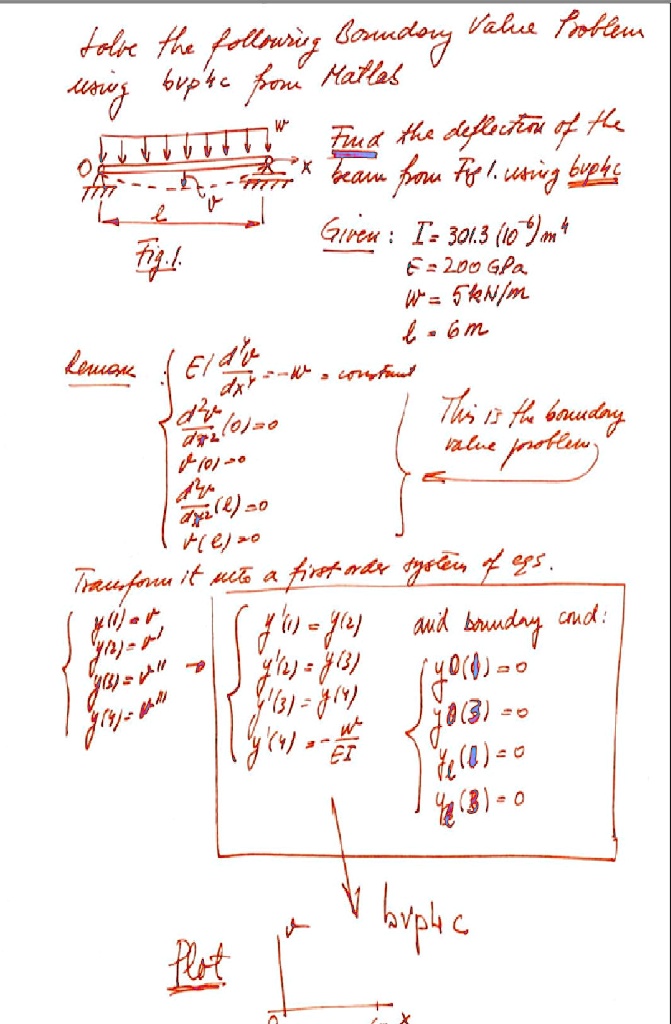 Solve the following Boundary Value Problem
using bvp4c from Matlab
w
Find the deflection of the
O x beam from Fig 1. using bvp4c
v
l
Fig. 1.
Given: I = 301.3 (10⁻⁶) m⁴
E = 200 GPa
w = 5 kN/m
l = 6 m
Remark : EI d⁴v/dx⁴ = -w = constant
d²v/dx² (0) = 0
v(0) = 0
d²v/dx² (l) = 0
v(l) = 0
This is the boundary
value problem
Transform it into a first order system of eqs.
y(1) = v
y(2) = v'
y(3) = v''
y(4) = v'''
y'(1) = y(2)
y'(2) = y(3)
y'(3) = y(4)
y'(4) = - w/EI
and boundary cond:
y0(1) = 0
y0(3) = 0
yl(1) = 0
yl(3) = 0
bvp4c
Plot
v
0 x